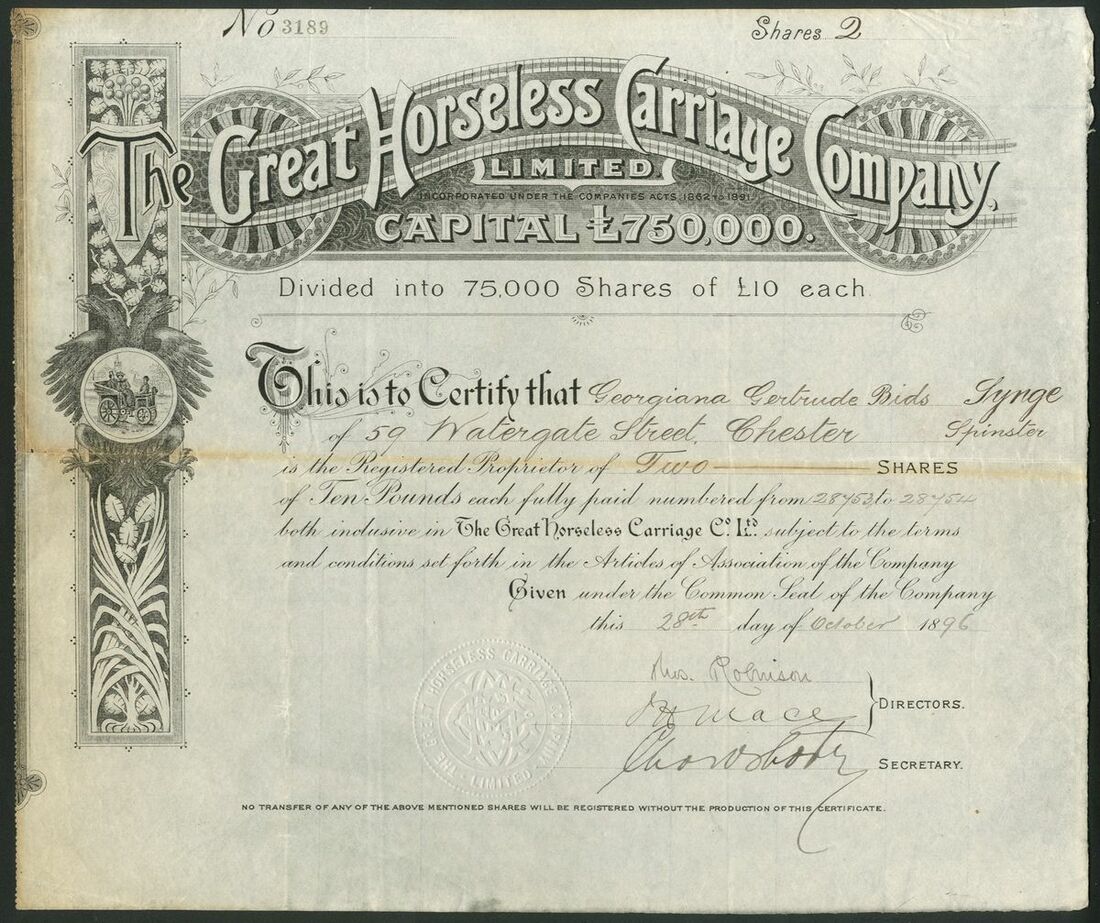 No 3189 Shares 2
The Great Horseless Carriage Company,
LIMITED
INCORPORATED UNDER THE COMPANIES ACTS, 1862 TO 1891.
CAPITAL £750,000.
Divided into 75,000 Shares of £10 each.
This is to Certify that Georgiana Gertrude Bids Synge
of 59 Watergate Street, Chester Spinster
is the Registered Proprietor of Two SHARES
of Ten Pounds each fully paid numbered from 28453 to 28454
both inclusive in The Great Horseless Carriage Co. Ltd. subject to the terms
and conditions set forth in the Articles of Association of the Company
Given under the Common Seal of the Company
this 28th day of October 1896
Robinson
J H Mace
DIRECTORS.
SECRETARY.
THE GREAT HORSELESS CARRIAGE COMPANY LIMITED
NO TRANSFER OF ANY OF THE ABOVE MENTIONED SHARES WILL BE REGISTERED WITHOUT THE PRODUCTION OF THIS CERTIFICATE.